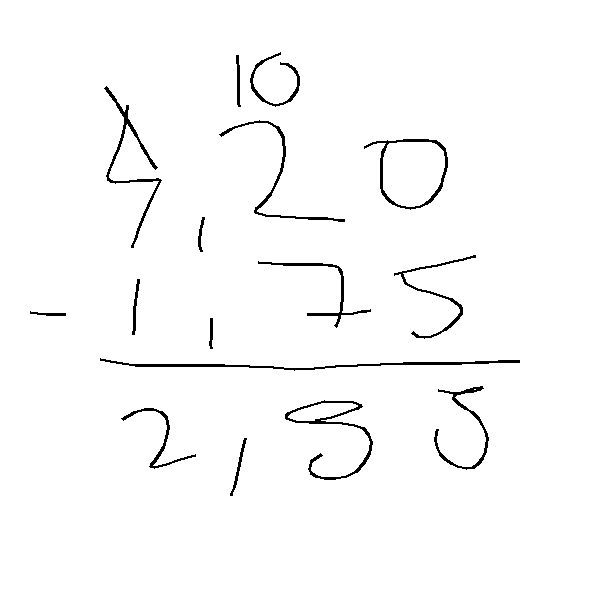 10
4,20
- 1,75
2,55